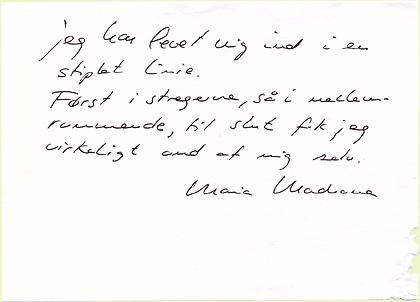 jeg har levet mig ind i en
stiplet linie.
Først i stregerne, så i mellem-
rummende, til slut fik jeg
virkeligt ond af mig selv.
Maria Madrane